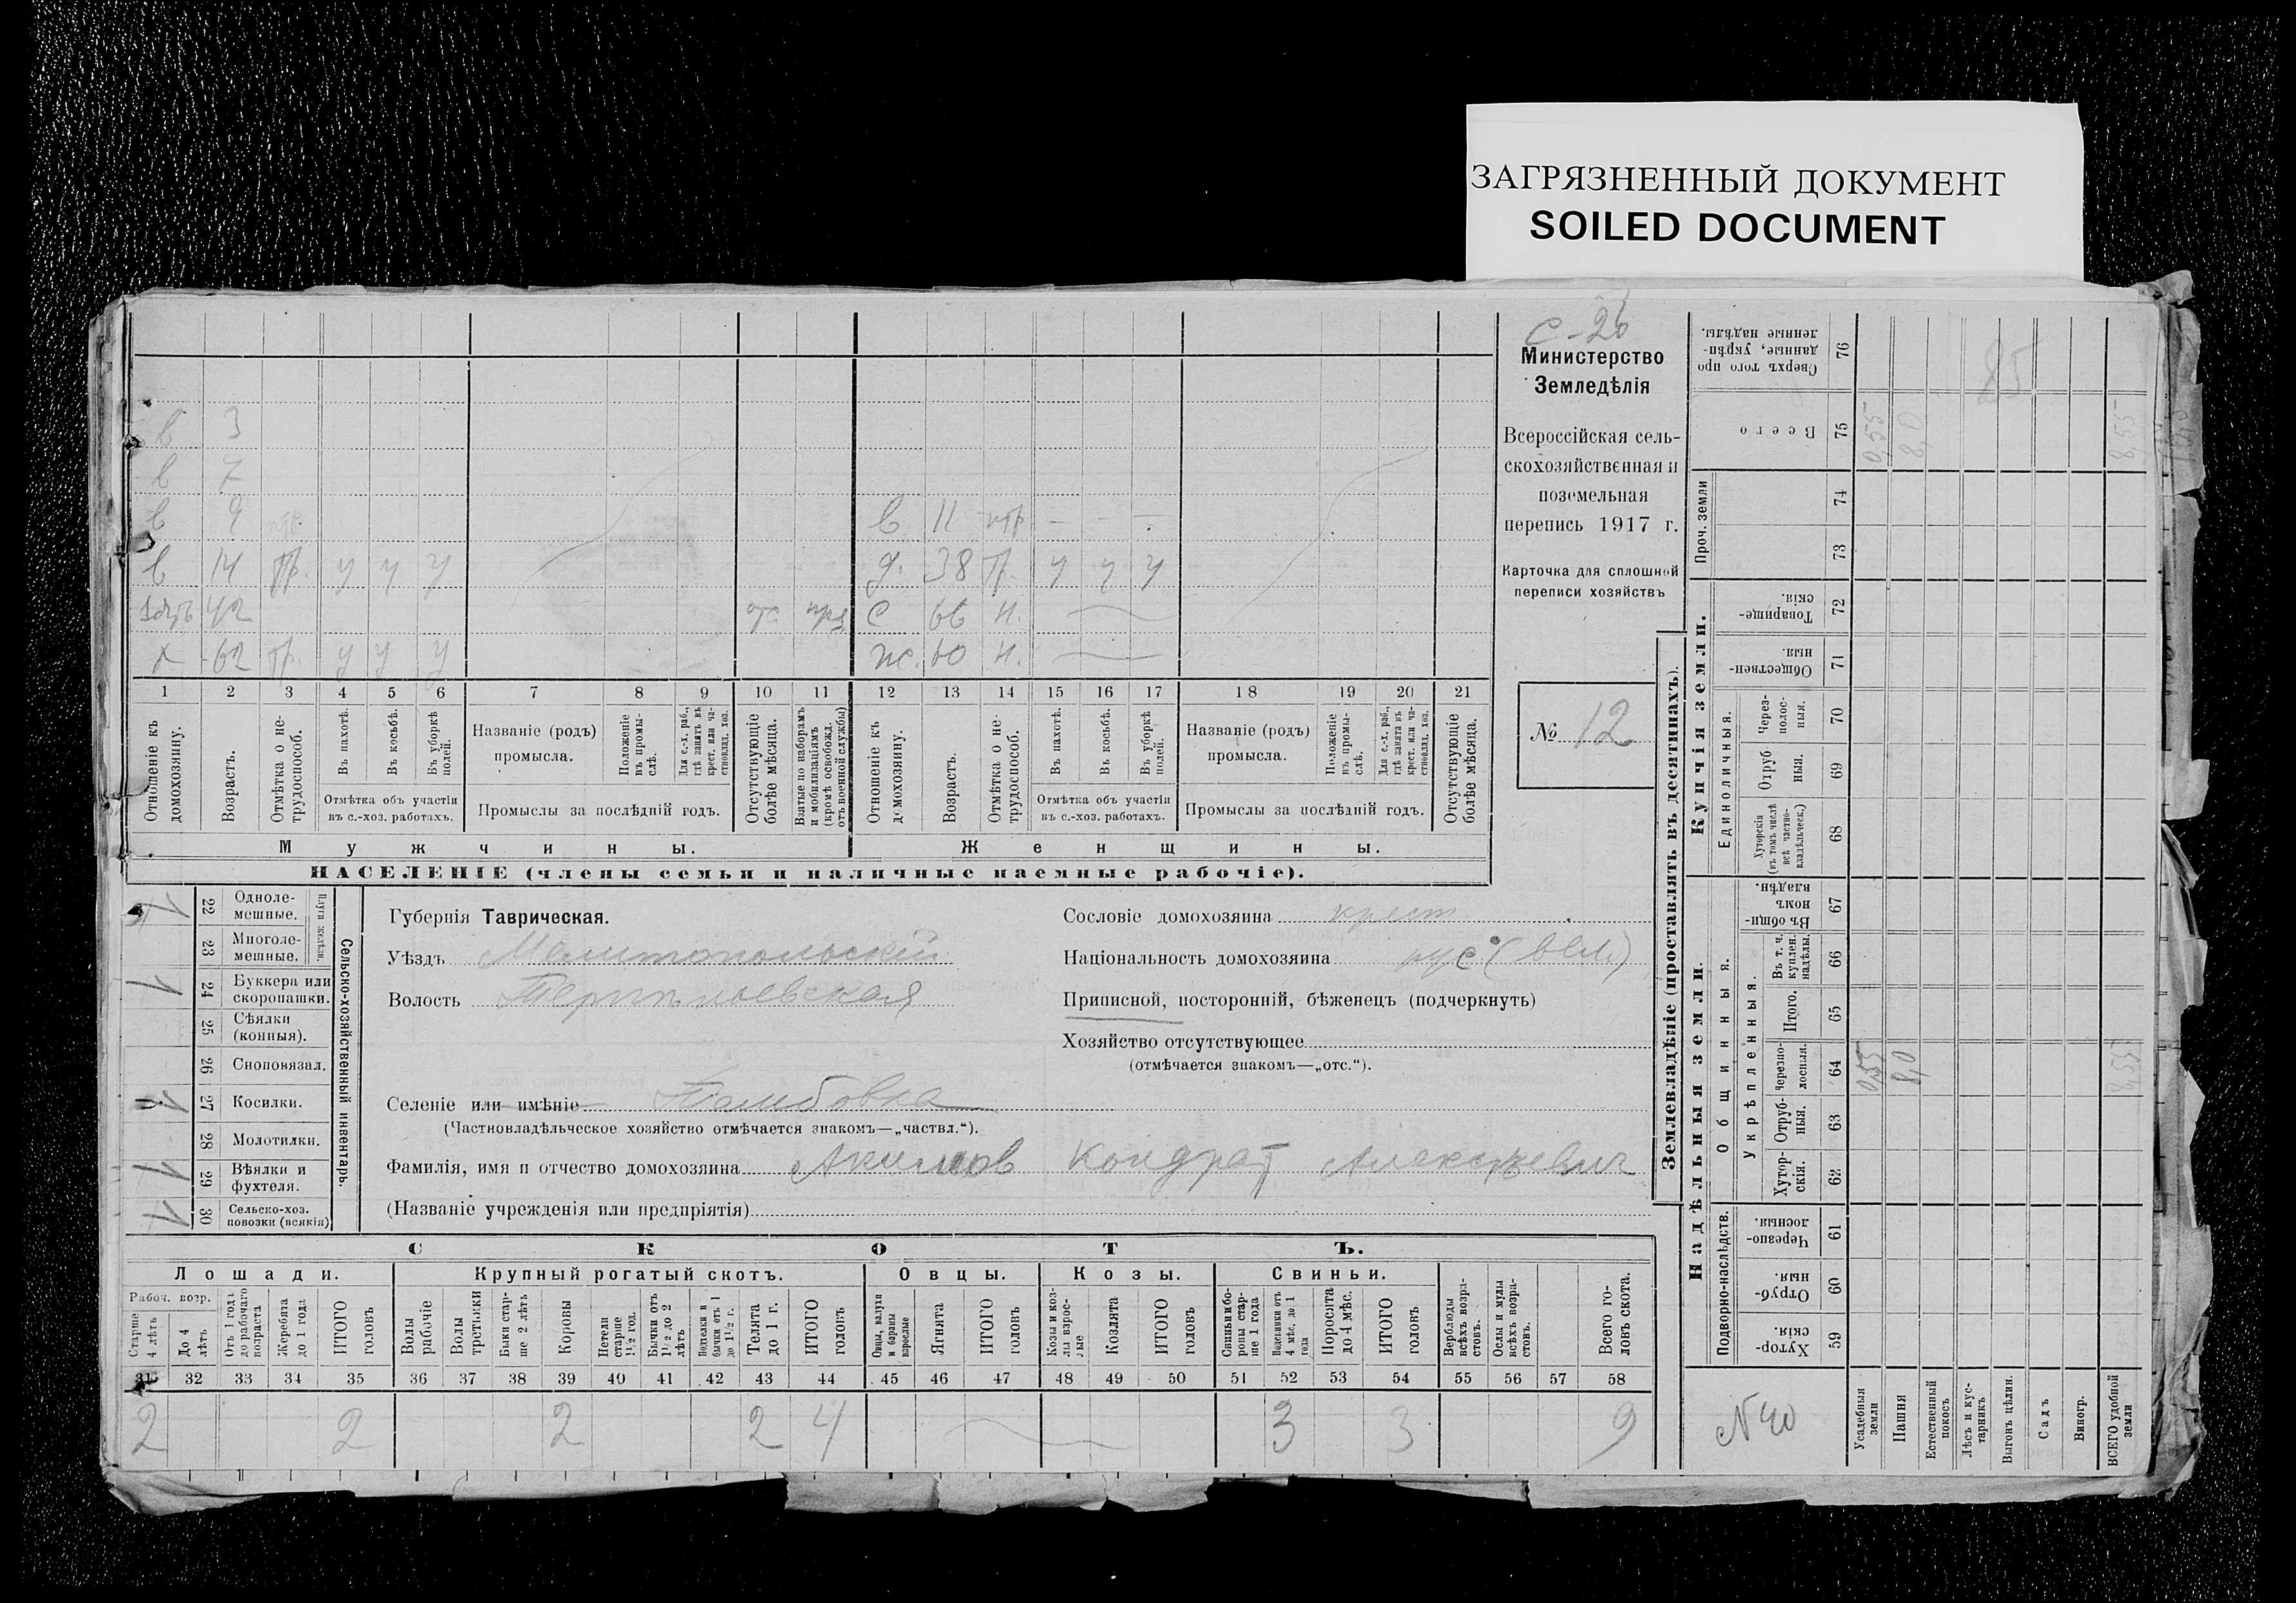 ЗАГРЯЗНЕННЫЙ ДОКУМЕНТ
SOILED DOCUMENT
С-26
Министерство
Земледѣлія
Всероссійская сель-
скохозяйственная и
поземельная
перепись 1917 г.
Карточка для сплошной
переписи хозяйствъ
№ 12
в 3
в 7
в 9
в 11
в 14 тр. у у у
д. 38 тр. у у у
42
с 66 н.
х 62 тр. у у у
ж. 60 н.
1 2 3 4 5 6 7 8 9 10 11 12 13 14 15 16 17 18 19 20 21
Отношеніе къ домохозяину.
Возрастъ.
Отмѣтка о не-трудоспособ.
Въ пахотѣ.
Въ косьбѣ.
Въ уборкѣ полей.
Отмѣтка объ участіи
въ с.-хоз. работахъ.
Названіе (родъ)
промысла.
Положеніе въ промы-слѣ.
Для с.-х. раб., гдѣ занятъ въ крест. или ча-стновлад. хоз.
Промыслы за послѣдній годъ.
Отсутствующіе болѣе мѣсяца.
Взятые по наборамъ и мобилизаціямъ (кромѣ освобожд. отъ военной службы)
Отношеніе къ домохозяину.
Возрастъ.
Отмѣтка о не-трудоспособ.
Въ пахотѣ.
Въ косьбѣ.
Въ уборкѣ полей.
Отмѣтка объ участіи
въ с.-хоз. работахъ.
Названіе (родъ)
промысла.
Положеніе въ промы-слѣ.
Для с.-х. раб., гдѣ занята въ крест. или ча-стновлад. хоз.
Промыслы за послѣдній годъ.
Отсутствующіе болѣе мѣсяца.
Мужчины.
Женщины.
НАСЕЛЕНІЕ (члены семьи и наличные наемные рабочіе).
Сельско-хозяйственный инвентарь.
Плуги желѣзн.
1 22 Одноле-мешные.
23 Многоле-мешные.
1 24 Буккера или скоропашки.
25 Сѣялки (конныя).
26 Сноповязал.
1 27 Косилки.
28 Молотилки.
1 29 Вѣялки и фухтеля.
1 30 Сельско-хоз. повозки (всякія)
Губернія Таврическая.
Уѣздъ Мелитопольскій
Волость
Селеніе или имѣніе Тамбовка
(Частновладѣльческое хозяйство отмѣчается знакомъ—„частвл.“).
Фамилія, имя и отчество домохозяина Акимов Кондрат Алексѣевич
(Названіе учрежденія или предпріятія)
Сословіе домохозяина крест.
Національность домохозяина рус (вел.)
Приписной, посторонній, бѣженецъ (подчеркнуть)
Хозяйство отсутствующее
(отмѣчается знакомъ—„отс.“).
СКОТЪ.
Лошади.
Крупный рогатый скотъ.
Овцы.
Козы.
Свиньи.
Рабоч. возр.
Старше 4 лѣтъ
До 4 лѣтъ
Отъ 1 года до рабочаго возраста
Жеребята до 1 года
ИТОГО головъ
Волы рабочіе
Волы третьяки
Быки стар-ше 2 лѣтъ
Коровы
Нетели старше 1½ год.
Бычки отъ 1½ до 2 лѣтъ
Бычки отъ 1 до 1½ г.
Телята до 1 г.
ИТОГО головъ
Овцы, валухи и бараны взрослые
Ягнята
ИТОГО головъ
Козы и коз-лы взрос-лые
Козлята
ИТОГО головъ
Свиньи и бо-ровы стар-ше 1 года
Подсвинки отъ 4 мѣс. до 1 года
Поросята до 4 мѣс.
ИТОГО головъ
Верблюды всѣхъ возра-стовъ.
Ослы и мулы всѣхъ возра-стовъ.
Всего го-ловъ скота.
31 32 33 34 35 36 37 38 39 40 41 42 43 44 45 46 47 48 49 50 51 52 53 54 55 56 57 58
2 2 2 2 4 3 3 9
Землевладѣніе (проставлять въ десятинахъ).
Купчія земли.
Надѣльныя земли.
Сверхъ того про-данные, укрѣп-ленные надѣлы. 76
85
Всего 75 0,55 8,0 8,55
Проч. земли 74 73
Товарище-скія. 72
Обществен-ныя. 71
Единоличныя.
Через-полос-ныя. 70
Отруб-ныя. 69
Хуторскія (въ томъ числѣ всѣ частно-владѣльческ.) 68
Общинныя.
Въ общин-номъ владѣн. 67
Укрѣпленныя.
Въ т. ч. куплен. надѣлы. 66
Итого. 65
Черезпо-лосныя. 64 0,55 8,0 8,55
Отруб-ныя. 63
Хутор-скія. 62
Подворно-наслѣдств.
Черезпо-лосныя. 61
Отруб-ныя. 60
Хутор-скія. 59
№ 40
Усадебныя земли
Пашня
Естественный покосъ
Лѣсъ и кус-тарникъ
Выгонъ цѣлин.
Садъ
Виногр.
ВСЕГО удобной земли